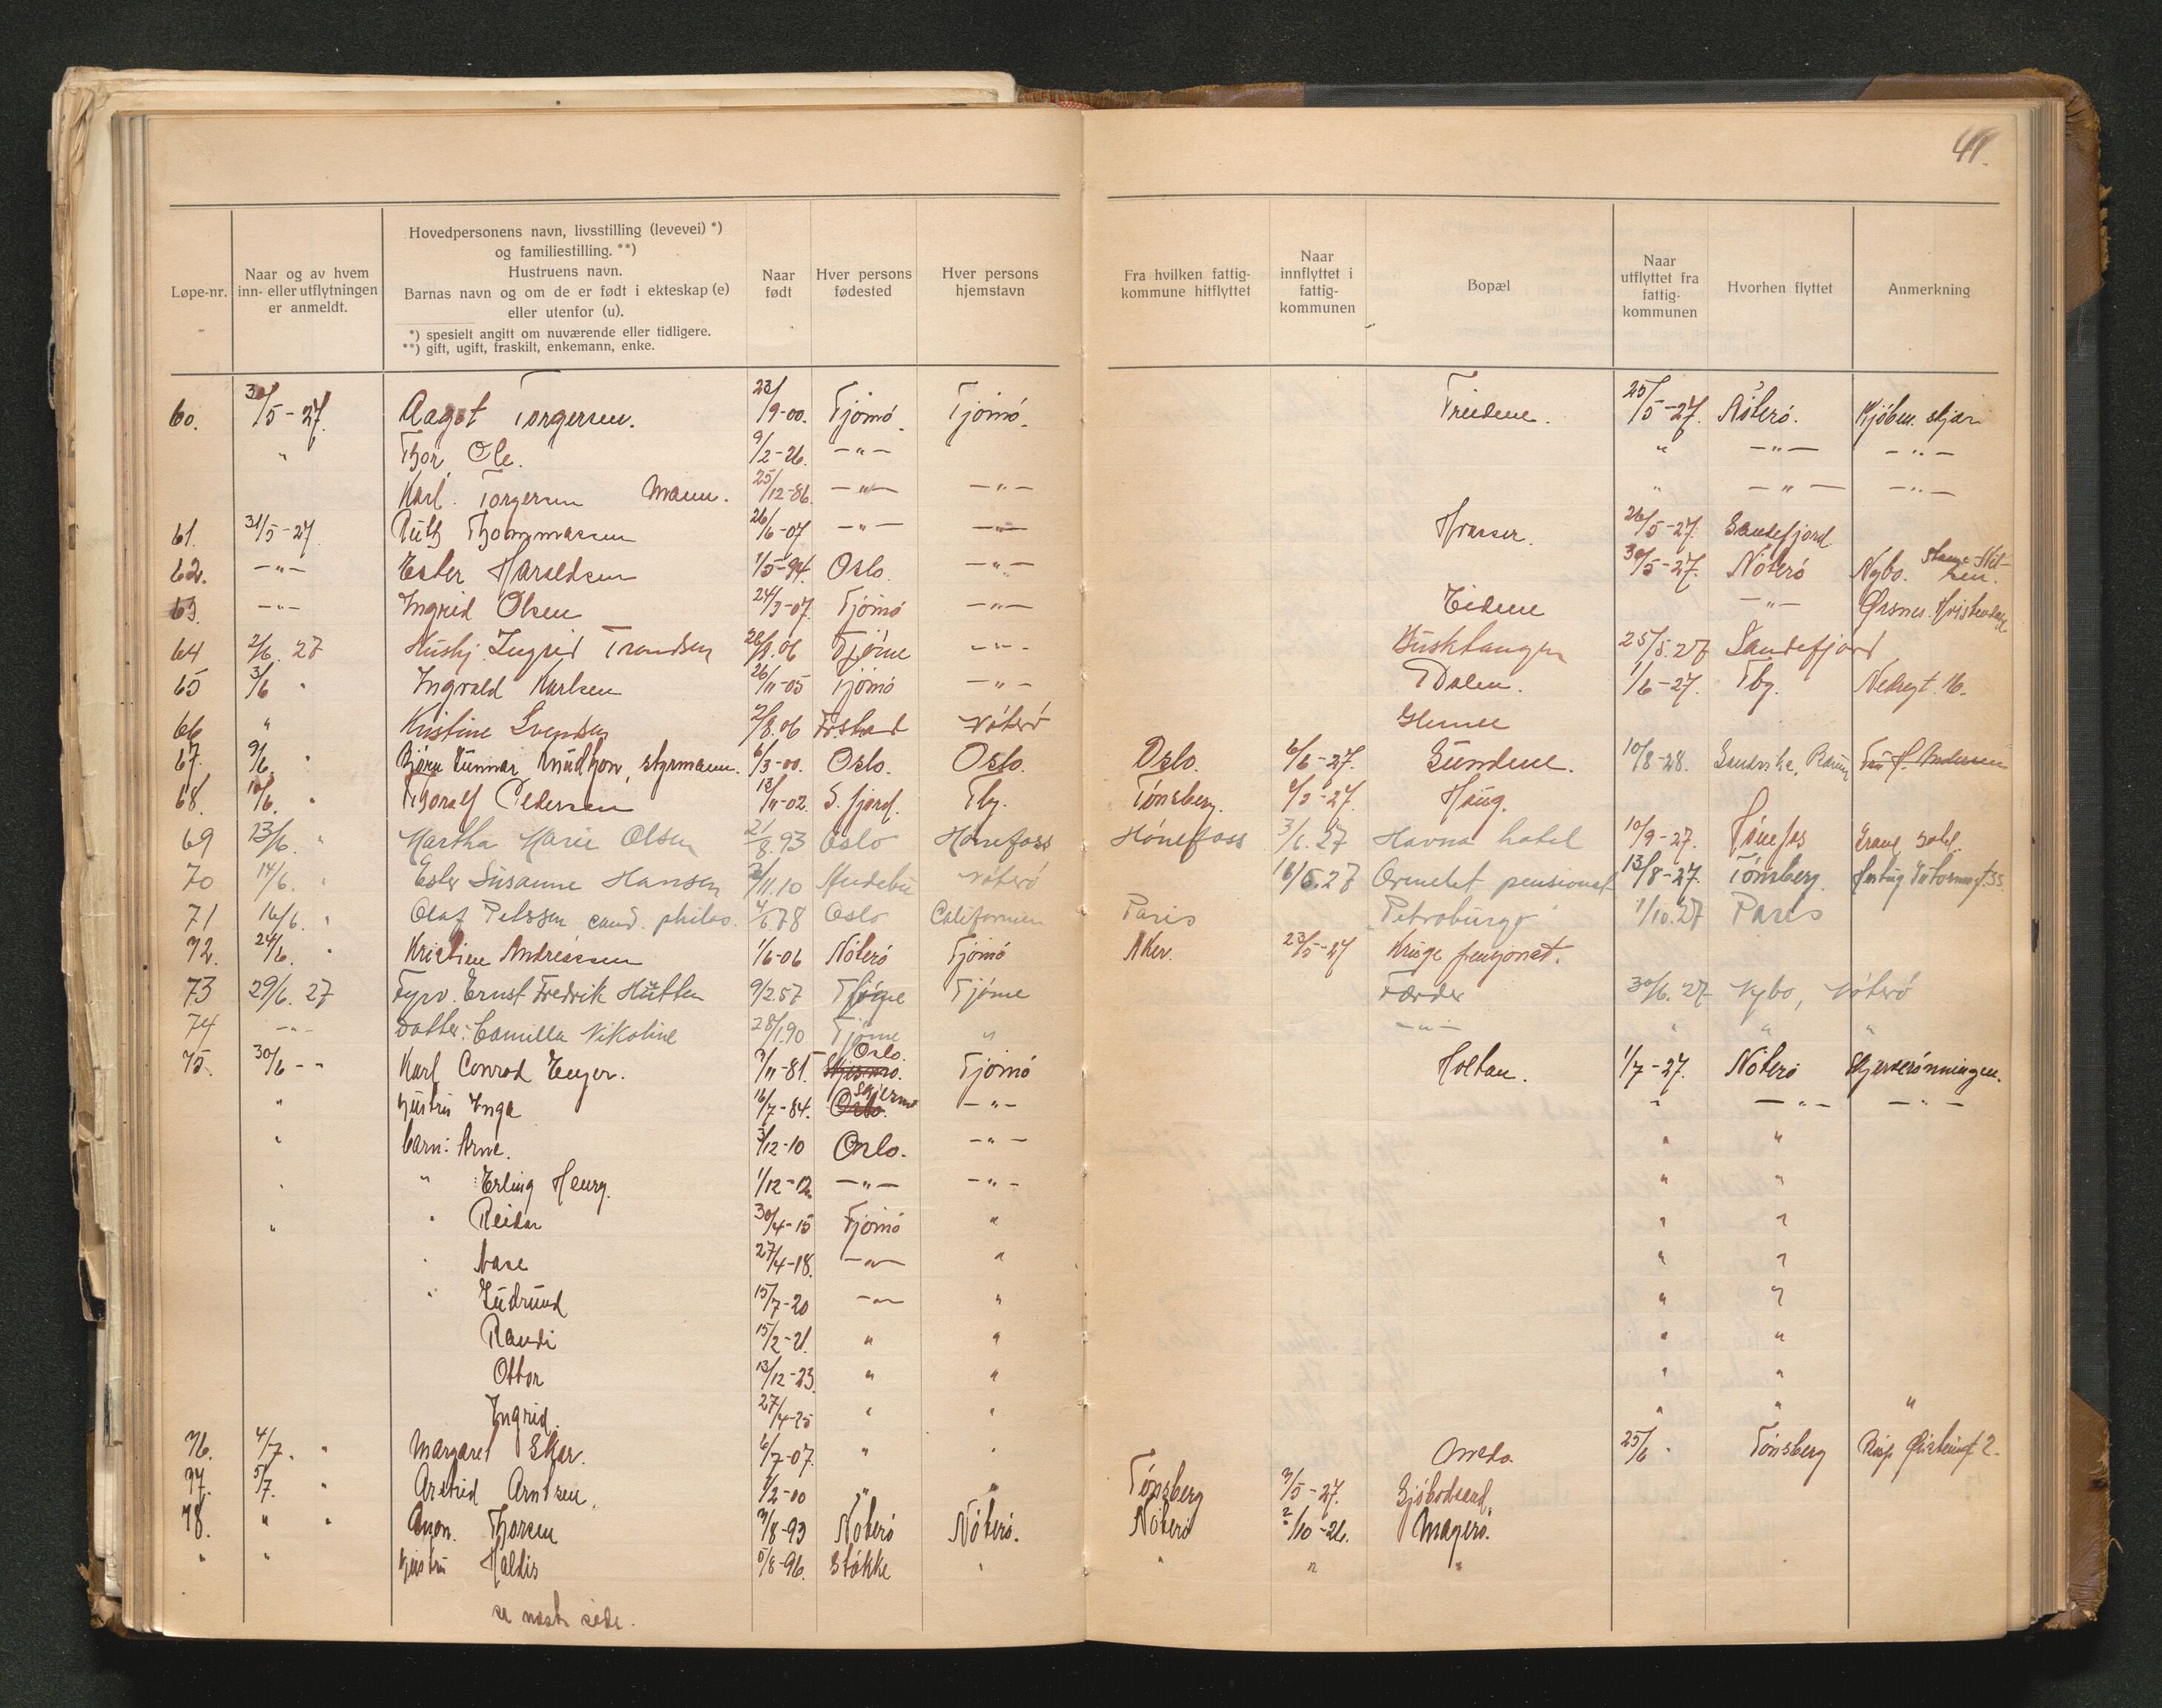 41.
Løpe-nr.
Naar og av hvem inn- eller utflytningen er anmeldt.
Hovedpersonens navn, livsstilling (levevei) *)
og familiestilling. **)
Hustruens navn.
Barnas navn og om de er født i ekteskap (e)
eller utenfor (u).
*) spesielt angitt om nuværende eller tidligere.
**) gift, ugift, fraskilt, enkemann, enke.
Naar født
Hver persons fødested
Hver persons hjemstavn
Fra hvilken fattigkommune hitflyttet
Naar innflyttet i fattigkommunen
Bopæl
Naar utflyttet fra fattigkommunen
Hvorhen flyttet
Anmerkning
60. 30/5-27. Aagot Torgersen. 23/9-00. Tjömö. Tjömö. 25/5-27. Nöterö.
" Thor Ole. 9/2-26. -"- " -"- -"-
Karl Torgersen Mann. 25/12-86. -"- -"- " -"- -"-
61. 31/5-27. Ruth Thommassen 26/6-07 -"- -"- 26/5-27. Sandefjord
62. -"- Ester Haraldsen 1/5-94. Oslo. -"- 30/5-27. Nöterö Nybo.
63. -"- Ingrid Olsen 24/3-07. Tjömö -"- Eidene -"- Ørsnes.
64 2/6. 27 Hushj. Ingrid Trondsen 28/8.06 Tjöme -"- 25/5.27 Sandefjord
65 3/6 " Ingvald Karlsen 26/11-05 Tjömö -"- Dalen. 1/6-27. Tbg. Nedregt. 16.
66 " Kristine Svendsen 2/8.06 Nöterö
67. 9/6. " Björn Gunnar Knudtzon, styrmann. 6/3-00. Oslo. Oslo. Oslo. 6/6-27. Sundene. 10/8-28. Sandvika,
68. 10/6. " Thoralf Pedersen 12/11-02. S. fjord. Tbg. Tönsberg. Haug.
69 13/6. " Martha Marie Olsen 21/8.93 Oslo Hönefoss Hönefoss 3/6.27 Havna hotel 10/9-27. Hönefos Grand hotel.
70 14/6. " Ester Susanne Hansen 2/11.10 Andebu Nöterö 16/5.27 Ormelet pensionat 13/8-27. Tönsberg.
71 16/6. " Olaf Petersen cand. philos. 4/6.78 Oslo Californien Paris Petroburgo 1/10.27 Paris
72. 24/6. " Kristine Andreassen 1/6-06 Nöterö Tjömö Aker. 23/5-27 Kruge pensjonat.
73 29/6. 27 Fyrv. Ernst Fredrik Hütten 9/2.57 Tjöme Tjöme Færder 30/6.27 Nybo, Nöterö
74 -"- Datter: Camilla Nikoline 28/1.90 Tjöme " -"- " " "
75. 30/6 -"- Karl Conrad Enger. 9/11-81. Oslo. Tjömö Holtan. 1/7-27. Nöterö
" Hustru Inga 16/7-84. Oslo. -"- " -"- -"-
" barn: Arne. 3/12-10 Oslo. -"- " "
" " Erling Henry. 1/12-12. -"- -"- " "
" " Reidar 30/4-15 Tjömö " " "
" Aase 27/4-18. -"- " " "
" Gudrund 15/7-20 -"- " " "
Randi 15/2-21. " " " "
Ottor 13/12-23. " " " "
Ingrid. 27/4-25 " " " " "
76. 4/7. " Margaret Skar. 6/7-07. " " 25/6 " Tönsberg
77. 5/7. " Arstrid Arntsen. 1/2-00 " " Tönsberg 3/5-27. Gjöbodsand.
78. " " Anon. Thorsen 9/8-93 Nöterö Nöterö. Nöterö 2/10-26. Magerö.
" " Hustru Haldis 5/8-96. Stökke " " " "
se neste side.